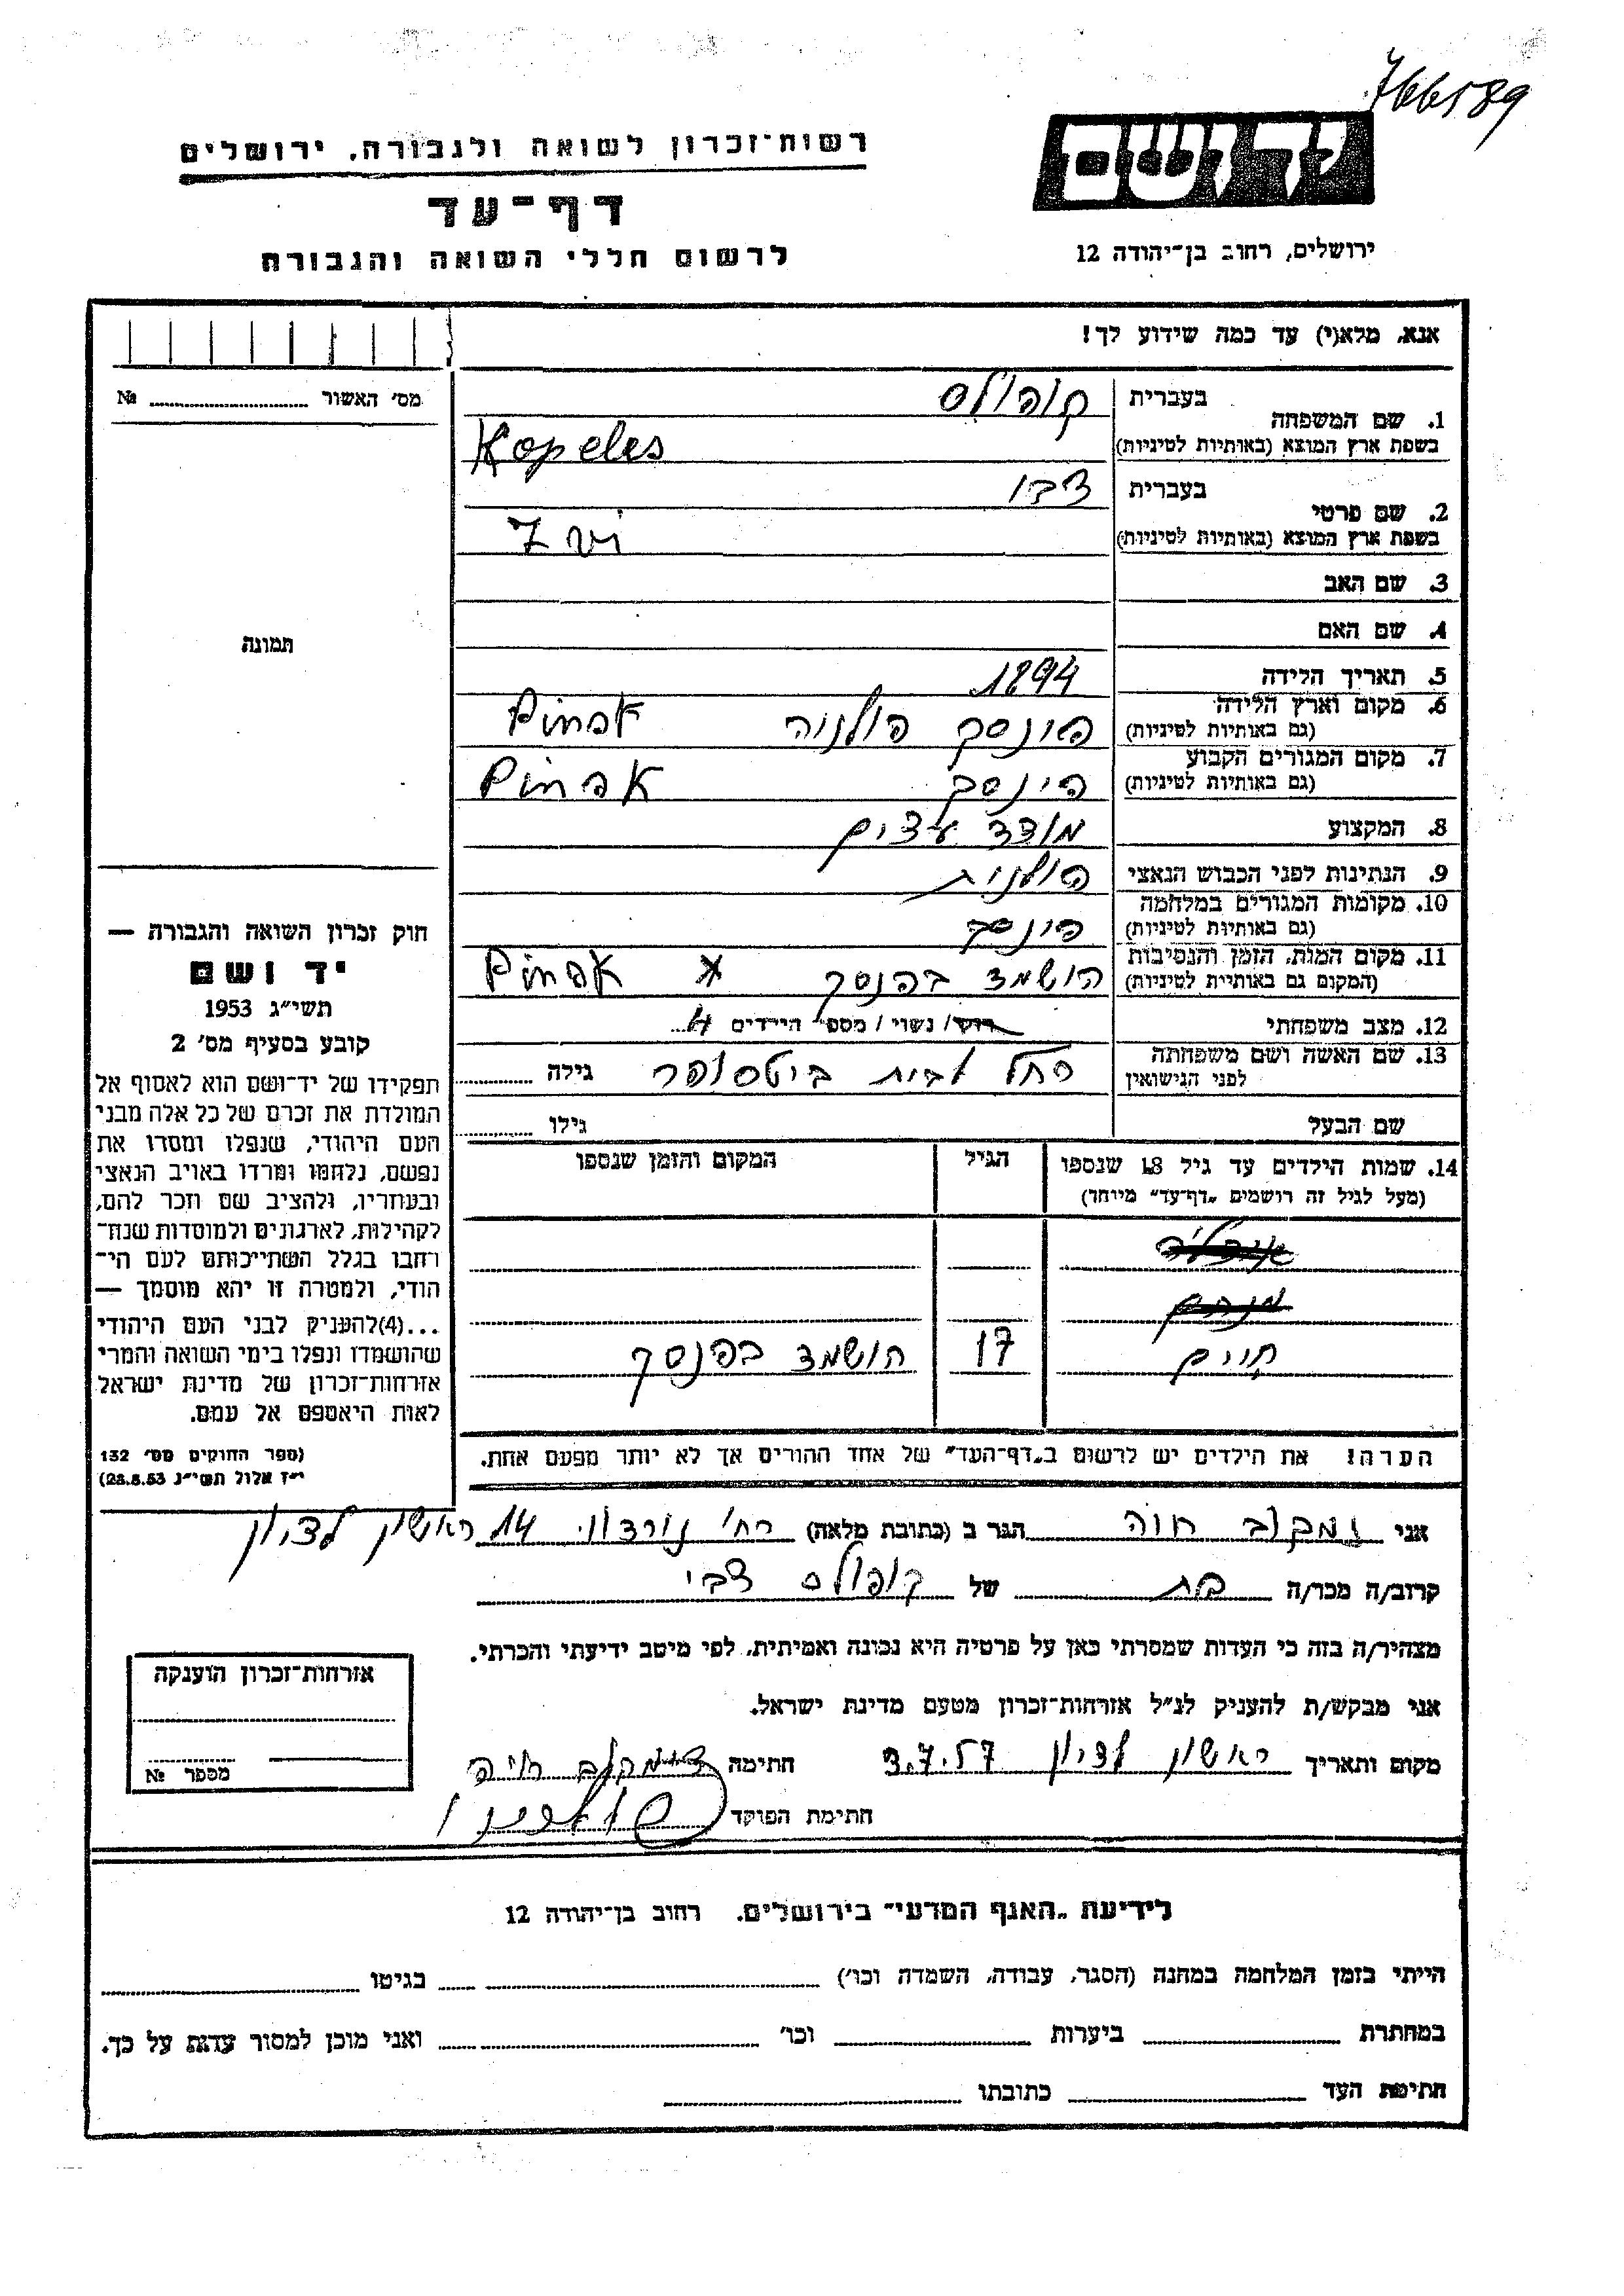 766589
יד ושם
ירושלים, רחוב בן־יהודה 12
רשות־זכרון לשואה ולגבורה, ירושלים
דף־עד
לרשום חללי השואה והגבורה
אנא, מלא(י) עד כמה שידוע לך!
מס׳ האשור № 
1. שם המשפחה בעברית קופולס
בשפת ארץ המוצא (באותיות לטיניות) Kopeles
2. שם פרטי בעברית צבי
בשפת ארץ המוצא (באותיות לטיניות) Zvi
3. שם האב
4. שם האם
5. תאריך הלידה 1894
6. מקום וארץ הלידה (גם באותיות לטיניות) פינסק פולניה Pinsk
7. מקום המגורים הקבוע (גם באותיות לטיניות) פינסק Pinsk
8. המקצוע מודד עצים
9. הנתינות לפני הכבוש הנאצי פולנית
10. מקומות המגורים במלחמה (גם באותיות לטיניות) פינסק
11. מקום המות, הזמן והנסיבות (המקום גם באותיות לטיניות) הושמד בפנסק Pinsk
12. מצב משפחתי רווק / נשוי / מספר הילדים 4
13. שם האשה ושם משפחתה לפני הנישואין רחל לבית גילה
שם הבעל גילו
14. שמות הילדים עד גיל 18 שנספו הגיל המקום והזמן שנספו
(מעל לגיל זה רושמים „דף־עד״ מיוחד)
חיים 17 הושמד בפנסק
הערה! את הילדים יש לרשום ב„דף־העד״ של אחד ההורים אך לא יותר מפעם אחת.
תמונה
חוק זכרון השואה והגבורה —
יד ושם
תשי״ג 1953
קובע בסעיף מס׳ 2
תפקידו של יד־ושם הוא לאסוף אל
המולדת את זכרם של כל אלה מבני
העם היהודי, שנפלו ומסרו את
נפשם, נלחמו ומרדו באויב הנאצי
ובעוזריו, ולהציב שם וזכר להם,
לקהילות, לארגונים ולמוסדות שנח־
רחבו בגלל השתייכותם לעם הי־
הודי, ולמטרה זו יהא מוסמך —
...(4)להעניק לבני העם היהודי
שהושמדו ונפלו בימי השואה והמרי
אזרחות־זכרון של מדינת ישראל
לאות היאספם אל עמם.
(ספר החוקים מס׳ 132
י״ז אלול תשי״ג 28.8.53)
אני חוה הגר ב (כתובת מלאה) רח׳ נורדוי 14 ראשון לציון
קרוב/ה מכר/ה בת של קופולס צבי
מצהיר/ה בזה כי העדות שמסרתי כאן על פרטיה היא נכונה ואמיתית, לפי מיטב ידיעתי והכרתי.
אני מבקש/ת להעניק לנ״ל אזרחות־זכרון מטעם מדינת ישראל.
מקום ותאריך ראשון לציון 3.7.57 חתימה
חתימת הפוקד
אזרחות־זכרון הוענקה
מספר №
לידיעת „האגף המדעי״ בירושלים, רחוב בן־יהודה 12
הייתי בזמן המלחמה במחנה (הסגר, עבודה, השמדה וכו׳) בגיטו
במחתרת ביערות וכו׳ ואני מוכן למסור עדות על כך.
חתימת העד כתובתו